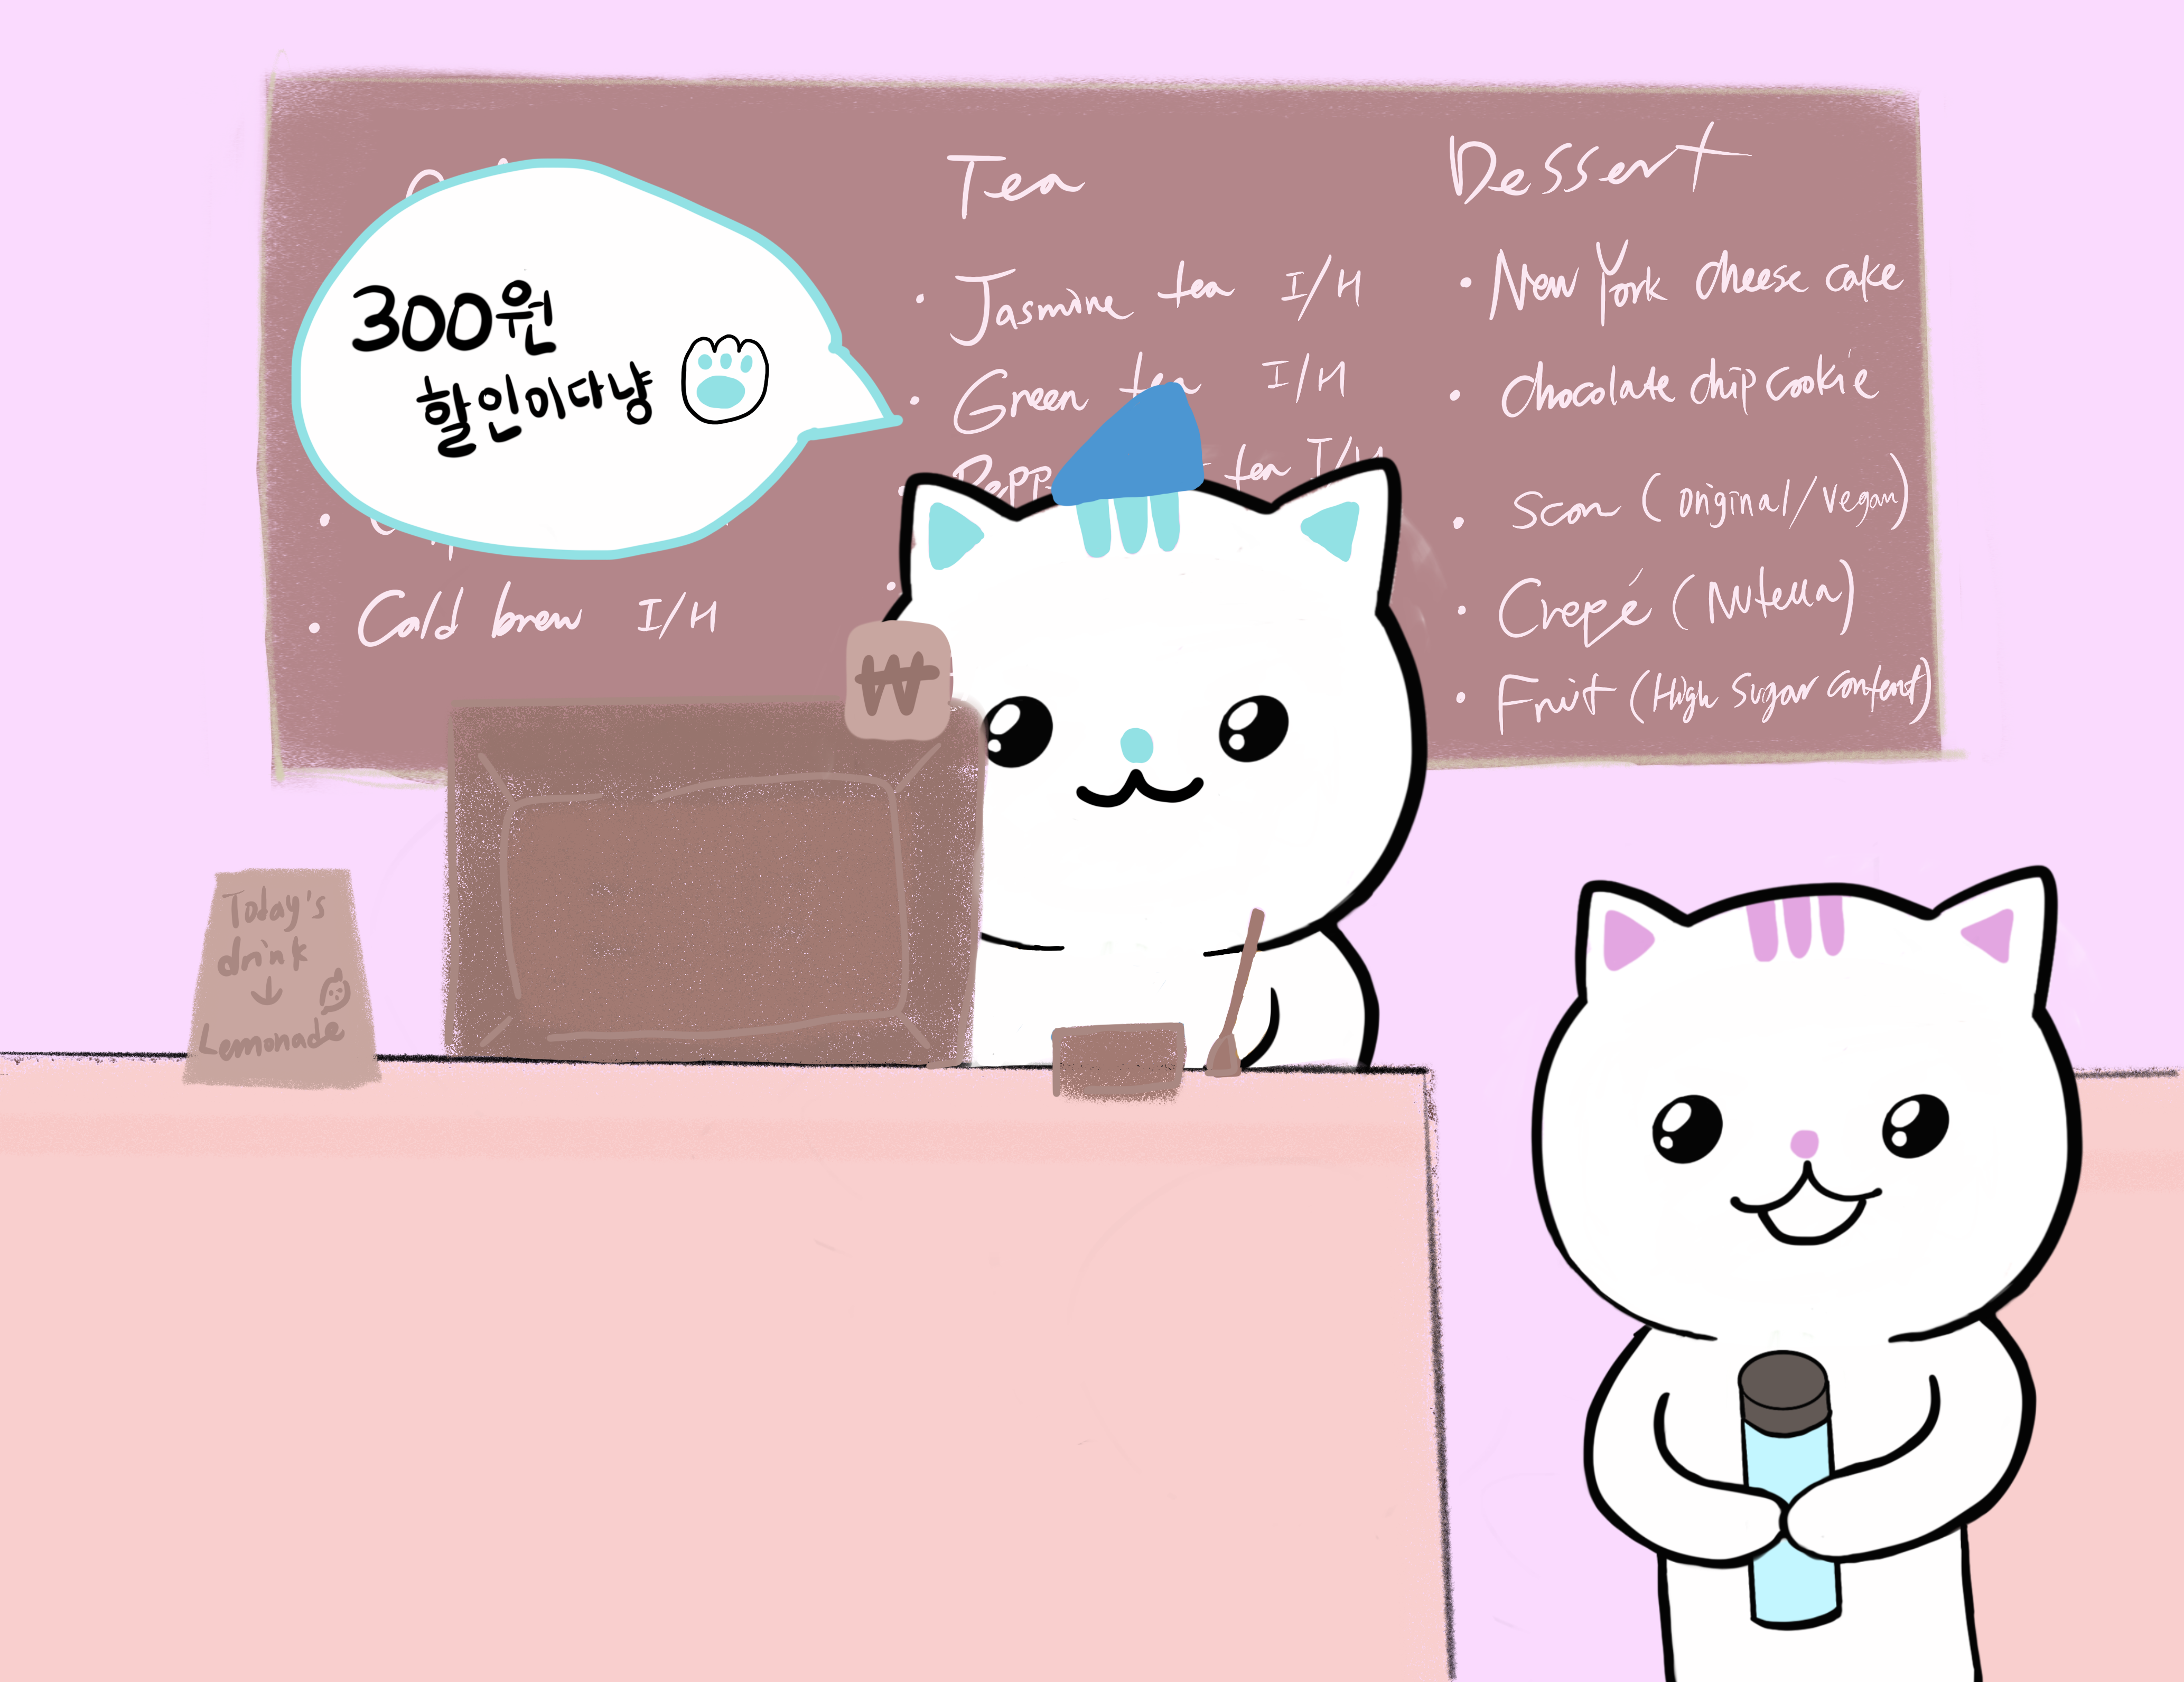 300원
할인이다냥
Cold brew I/H
Tea
Jasmine tea I/H
Green tea I/H
tea I/H
Dessert
• New York cheese cake
• chocolate chip cookie
• scon (original/vegan)
• Crepé (Nutella)
• Fruit (High sugar content)
₩
Today's
drink
↓
Lemonade